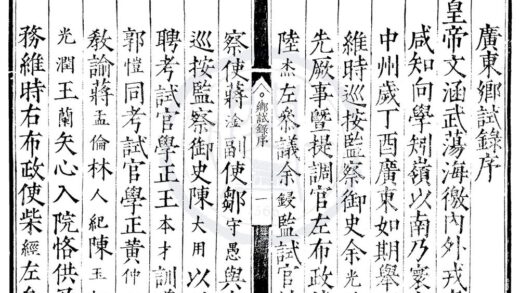 廣東鄉試錄序
皇帝文涵武蕩海徼內外戎
咸知向學矧嶺以南乃寰
中州歲丁酉廣東如期舉
維時巡按監察御史余光
先厥事曁提調官左布政
陸杰左叅議余錄監試官
鄉試錄序 一
察使蔣淦副使鄒守愚與
巡按監察御史陳大用以
聘考試官學正王本才訓
郭愷同考試官學正黃仲
敎諭蔣孟倫林人紀陳玉
光潤王蘭矢心入院恪供
務維時右布政使柴經左